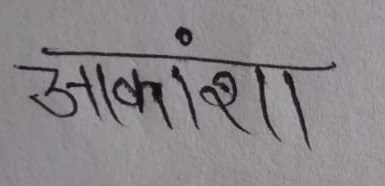 आकांशा